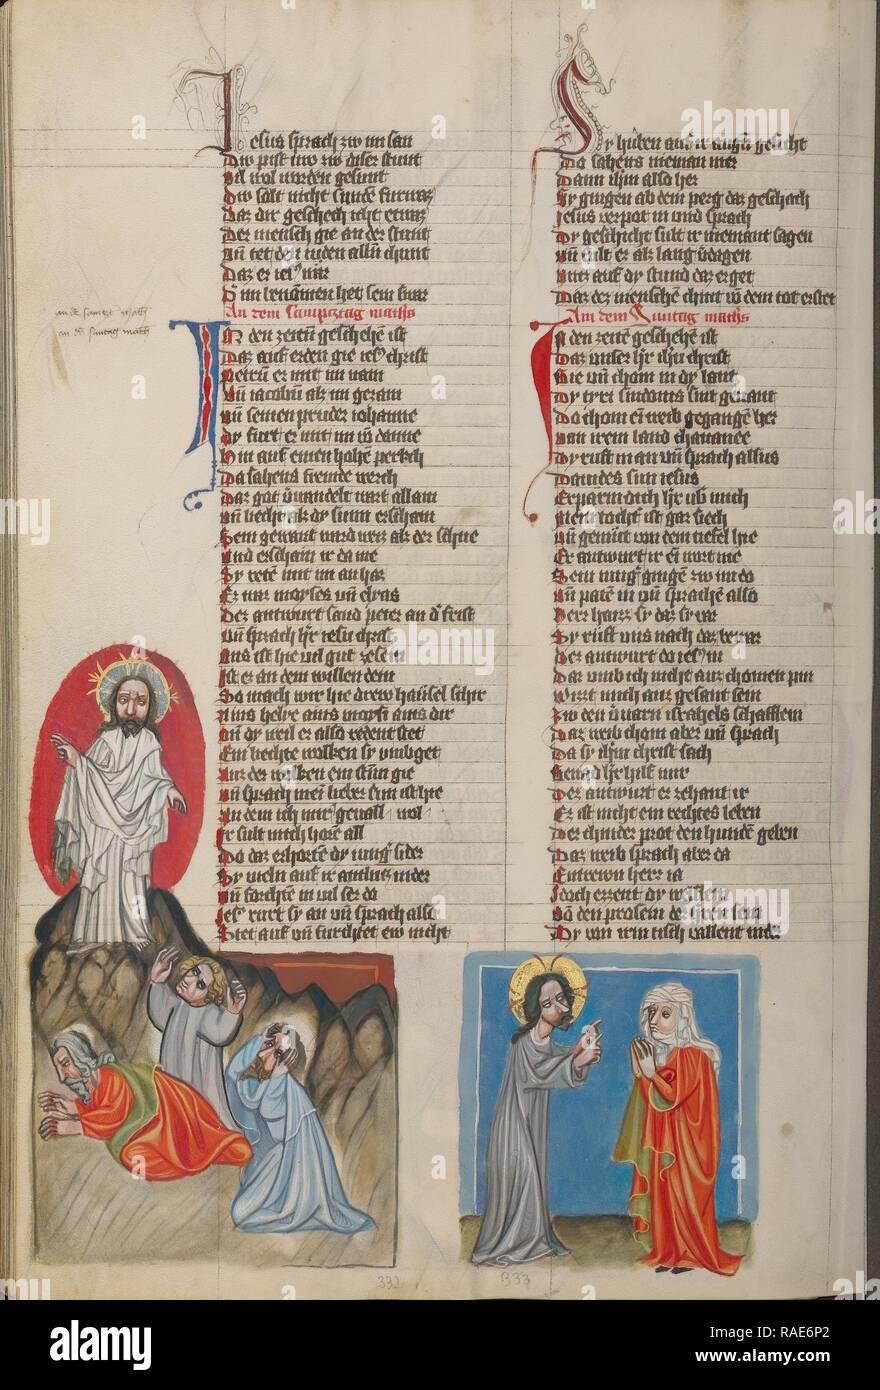 Jesus sprach zw im san
Dw pist two zw diser stunt
Vil wol worden gesunt
Dw solt nicht sunde furwaz
Daz dir geschech icht etwaz
Der mensch gie an der stunt
Vn tet den iuden allen chunt
Daz er ies' war
Der im benomen het sein swar
An dem sampcztag maths
In den zeiten geschehen ist
Daz auf erden gie ies' christ
Petrum er mit im nam
Vn iacobum als im gezam
Vn seinen pruder iohanne
Dy furt er mit im von danne
Hin auf einen hohen perkch
Da sahens fremde werch
Daz got verwandelt wart allain
Vn liecht als dy sunn erschain
Sein gewant ward weis als der schne
Vnd erschain in da me
Sy reten mit im an haz
Ez war moyses vn elyas
Der antwurt sand peter an der frist
Vn sprach her iesu christ
Vns ist hie vil gut zesein
Ist ez an dem willen dein
So mach wir hie drew haüsel schir
Ains helye ains moysi ains dir
Vn dy weil er also redent stet
Ein liechte wolken sy umbget
Auz der wolken ein stim gie
Vn sprach mein lieber sun ist hie
In dem ich mir geuall wol
Ir sult mich horen all
Do daz erhorten dy iunger sider
Sy vieln auf ir antlutz nider
Vn forchten in vil ser do
Ies' rurt sy an vn sprach also
Stet auf vn furchtet ew nicht
an de samczt math
an de suntag math
Sy huben auf ir augen gesicht
Do sahens nieman mer
Dann ihm also her
Sy gingen ab dem perg daz geschach
Iesus verpot in und sprach
Dy geschicht sult ir niemant sagen
Vn sult ez als lang verdagen
Vntz auf dy stund daz erget
Daz dez menschen chint von dem tot erstet
Am dem Suntag maths
In den zeiten geschehen ist
Daz vnser her ihu christ
Hie vn chom in dy lant
Dy tyri sindonis sint genant
Do chom ein weib gegangen her
Von irem land chananee
Dy ruft in an vn sprach alsus
Dauides sun iesus
Erparm dich her uber mich
Mein tochter ist gar siech
Vn gemut von dem tiefel hie
Er antwurt ir ein wort nie
Sein iunger gingen zw im do
Vn paten in vn sprachen also
Herr harr sy daz sy var
Sy ruft uns nach daz ver war
Der antwurt do ies' in
Dar umb ich nicht auz chomen pin
Wirt mich auz gesant sein
Zw den verlarn israhels schafflein
Daz weib chom aber vn sprach
Da sy ihm christ sach
Genad her hilf mir
Der antwurt er zehant ir
Ez ist nicht ein rechtes leben
Der chinder prot den hunden geben
Daz weib sprach aber da
Entrewn herr ia
Idoch ezzent dy welflein
Von den prosem der herren sein
Dy von irm tisch vallent nider
332
333
alamy
Image ID: RAE6P2
www.alamy.com